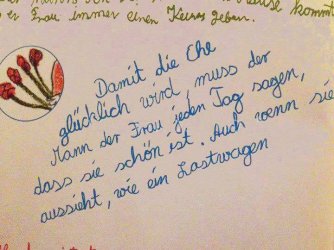 er Frau immer einen Kuss geben.
Damit die Ehe
glücklich wird muss der
Mann der Frau jeden Tag sagen,
dass sie schön ist. Auch wenn sie
aussieht, wie ein Lastwagen